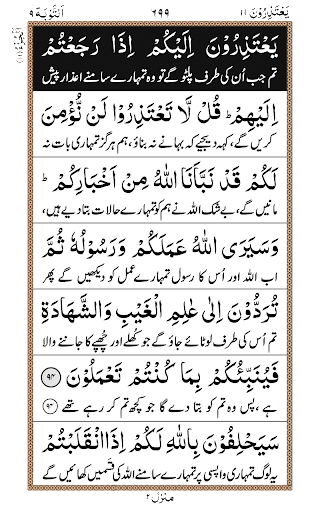 یَعْتَذِرُوْنَ ١١
٢٩٩
اَلتَّوْبَة ٩
اَلْجُزْءُ (١١)
یَعْتَذِرُوْنَ اِلَیْكُمْ اِذَا رَجَعْتُمْ
تم جب اُن کی طرف پلٹو گے تو وہ تمہارے سامنے اعذار پیش
اِلَیْهِمْ ؕ قُلْ لَّا تَعْتَذِرُوْا لَنْ نُّؤْمِنَ
کریں گے، کہہ دیجیے کہ بہانے نہ بناؤ، ہم ہرگز تمہاری بات نہ
لَكُمْ قَدْ نَبَّاَنَا اللّٰهُ مِنْ اَخْبَارِكُمْ ؕ
مانیں گے، بے شک اللہ نے ہم کو تمہارے حالات بتا دیے ہیں،
وَ سَیَرَی اللّٰهُ عَمَلَكُمْ وَ رَسُوْلُهٗ ثُمَّ
اب اللہ اور اُس کا رسول تمہارے عمل کو دیکھیں گے پھر
تُرَدُّوْنَ اِلٰی عٰلِمِ الْغَیْبِ وَ الشَّهَادَةِ
تم اُس کی طرف لوٹائے جاؤ گے جو کھلے اور چھپے کا جاننے والا
فَیُنَبِّئُكُمْ بِمَا كُنْتُمْ تَعْمَلُوْنَ ﴿٩٤﴾
ہے، پس وہ تم کو بتا دے گا جو کچھ تم کر رہے تھے ﴿٩٤﴾
سَیَحْلِفُوْنَ بِاللّٰهِ لَكُمْ اِذَا انْقَلَبْتُمْ
یہ لوگ تمہاری واپسی پر تمہارے سامنے اللہ کی قسمیں کھائیں گے
منزل ٢